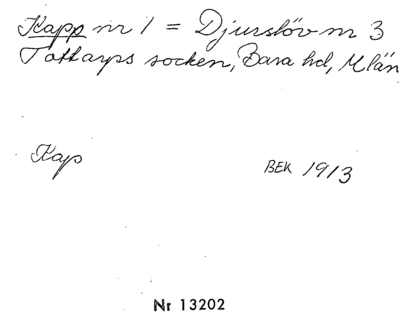 Kapp nr 1 = Djurslöv nr 3
Tottarps socken, Bara hd, M län
Kap
BEK 1913
Nr 13202